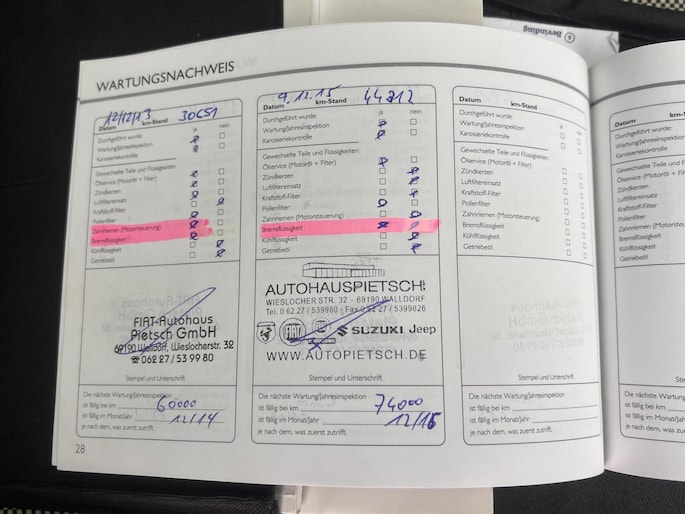 6 Bevinding
WARTUNGSNACHWEIS
12/12/13 30651
Datum km-Stand
Durchgeführt wurde: ja nein
Wartung/Jahresinspektion
Karosseriekontrolle
Gewechselte Teile und Flüssigkeiten:
Ölservice (Motoröl + Filter)
Zündkerzen
Luftfiltereinsatz
Kraftstoff-Filter
Pollenfilter
Zahnriemen (Motorsteuerung)
Bremsflüssigkeit
Kühlflüssigkeit
Getriebeöl
FIAT-Autohaus
Pietsch GmbH
69190 Walldorf, Wieslocherstr. 32
☎ 06227/539980
Stempel und Unterschrift
Die nächste Wartung/Jahresinspektion
ist fällig bei km 60000
ist fällig im Monat/Jahr 12/14
je nach dem, was zuerst zutrifft.
28
9.12.15 44812
Datum km-Stand
Durchgeführt wurde: ja nein
Wartung/Jahresinspektion
Karosseriekontrolle
Gewechselte Teile und Flüssigkeiten:
Ölservice (Motoröl + Filter)
Zündkerzen
Luftfiltereinsatz
Kraftstoff-Filter
Pollenfilter
Zahnriemen (Motorsteuerung)
Bremsflüssigkeit
Kühlflüssigkeit
Getriebeöl
AUTOHAUSPIETSCH
WIESLOCHER STR. 32 - 69190 WALLDORF
Tel. 0 62 27 / 539980 | Fax 0 62 27 / 5399826
FIAT SUZUKI Jeep
WWW.AUTOPIETSCH.DE
Stempel und Unterschrift
Die nächste Wartung/Jahresinspektion
ist fällig bei km 74000
ist fällig im Monat/Jahr 12/16
je nach dem, was zuerst zutrifft.
Datum km-Stand
Durchgeführt wurde: ja nein
Wartung/Jahresinspektion
Karosseriekontrolle
Gewechselte Teile und Flüssigkeiten:
Ölservice (Motoröl + Filter)
Zündkerzen
Luftfiltereinsatz
Kraftstoff-Filter
Pollenfilter
Zahnriemen (Motorsteuerung)
Bremsflüssigkeit
Kühlflüssigkeit
Getriebeöl
Stempel und Unterschrift
Die nächste Wartung/Jahresinspektion
ist fällig bei km
ist fällig im Monat/Jahr
je nach dem, was zuerst zutrifft.
Datum
Durchgeführt wurde:
Wartung/Jahresinspektion
Karosseriekontrolle
Gewechselte Teile und
Ölservice (Motoröl + Filter)
Zündkerzen
Luftfiltereinsatz
Kraftstoff-Filter
Pollenfilter
Zahnriemen
Bremsflüssigkeit
Kühlflüssigkeit
Getriebeöl
Die nächste
ist fällig bei
ist fällig im
je nach dem